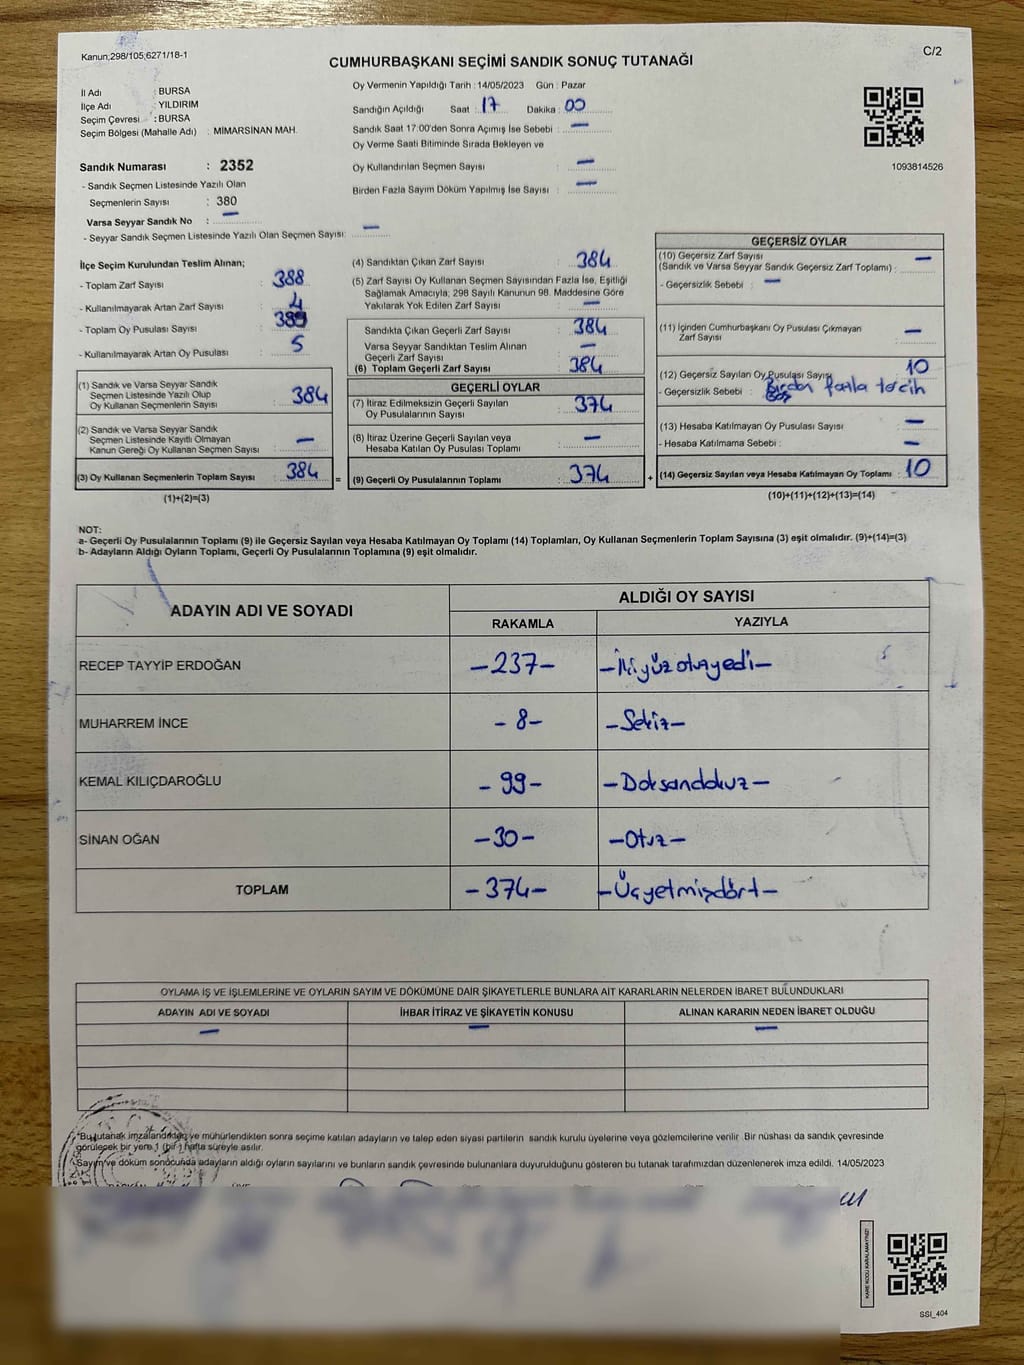 Kanun;298/105;6271/18-1
C/2
CUMHURBAŞKANI SEÇİMİ SANDIK SONUÇ TUTANAĞI
İl Adı : BURSA
İlçe Adı : YILDIRIM
Seçim Çevresi : BURSA
Seçim Bölgesi (Mahalle Adı) : MİMARSİNAN MAH.
Sandık Numarası : 2352
- Sandık Seçmen Listesinde Yazılı Olan
Seçmenlerin Sayısı : 380
Varsa Seyyar Sandık No : —
- Seyyar Sandık Seçmen Listesinde Yazılı Olan Seçmen Sayısı: —
Oy Vermenin Yapıldığı Tarih : 14/05/2023 Gün : Pazar
Sandığın Açıldığı Saat : 17 Dakika : 00
Sandık Saat 17:00'den Sonra Açımış İse Sebebi : —
Oy Verme Saati Bitiminde Sırada Bekleyen ve
Oy Kullandırılan Seçmen Sayısı : —
Birden Fazla Sayım Döküm Yapılmış İse Sayısı : —
1093814526
İlçe Seçim Kurulundan Teslim Alınan;
- Toplam Zarf Sayısı : 388
- Kullanılmayarak Artan Zarf Sayısı : 4
- Toplam Oy Pusulası Sayısı : 389
- Kullanılmayarak Artan Oy Pusulası : 5
(1) Sandık ve Varsa Seyyar Sandık
Seçmen Listesinde Yazılı Olup
Oy Kullanan Seçmenlerin Sayısı : 384
(2) Sandık ve Varsa Seyyar Sandık
Seçmen Listesinde Kayıtlı Olmayan
Kanun Gereği Oy Kullanan Seçmen Sayısı : —
(3) Oy Kullanan Seçmenlerin Toplam Sayısı : 384
(1)+(2)=(3)
(4) Sandıktan Çıkan Zarf Sayısı : 384
(5) Zarf Sayısı Oy Kullanan Seçmen Sayısından Fazla İse, Eşitliği
Sağlamak Amacıyla; 298 Sayılı Kanunun 98. Maddesine Göre
Yakılarak Yok Edilen Zarf Sayısı : —
Sandıkta Çıkan Geçerli Zarf Sayısı : 384
Varsa Seyyar Sandıktan Teslim Alınan
Geçerli Zarf Sayısı : —
(6) Toplam Geçerli Zarf Sayısı : 384
GEÇERLİ OYLAR
(7) İtiraz Edilmeksizin Geçerli Sayılan
Oy Pusulalarının Sayısı : 374
(8) İtiraz Üzerine Geçerli Sayılan veya
Hesaba Katılan Oy Pusulası Toplamı : —
= (9) Geçerli Oy Pusulalarının Toplamı : 374 +
GEÇERSİZ OYLAR
(10) Geçersiz Zarf Sayısı
(Sandık ve Varsa Seyyar Sandık Geçersiz Zarf Toplamı) : —
- Geçersizlik Sebebi : —
(11) İçinden Cumhurbaşkanı Oy Pusulası Çıkmayan
Zarf Sayısı : —
(12) Geçersiz Sayılan Oy Pusulası Sayısı : 10
- Geçersizlik Sebebi : Birden fazla tercih
(13) Hesaba Katılmayan Oy Pusulası Sayısı : —
- Hesaba Katılmama Sebebi : —
(14) Geçersiz Sayılan veya Hesaba Katılmayan Oy Toplamı : 10
(10)+(11)+(12)+(13)=(14)
NOT:
a- Geçerli Oy Pusulalarının Toplamı (9) ile Geçersiz Sayılan veya Hesaba Katılmayan Oy Toplamı (14) Toplamları, Oy Kullanan Seçmenlerin Toplam Sayısına (3) eşit olmalıdır. (9)+(14)=(3)
b- Adayların Aldığı Oyların Toplamı, Geçerli Oy Pusulalarının Toplamına (9) eşit olmalıdır.
ADAYIN ADI VE SOYADI
ALDIĞI OY SAYISI
RAKAMLA YAZIYLA
RECEP TAYYİP ERDOĞAN -237- -İkiyüzotuzyedi-
MUHARREM İNCE -8- -Sekiz-
KEMAL KILIÇDAROĞLU -99- -Doksandokuz-
SİNAN OĞAN -30- -Otuz-
TOPLAM -374- -Üçyetmişdört-
OYLAMA İŞ VE İŞLEMLERİNE VE OYLARIN SAYIM VE DÖKÜMÜNE DAİR ŞİKAYETLERLE BUNLARA AİT KARARLARIN NELERDEN İBARET BULUNDUKLARI
ADAYIN ADI VE SOYADI İHBAR İTİRAZ VE ŞİKAYETİN KONUSU ALINAN KARARIN NEDEN İBARET OLDUĞU
— — —
*Bu tutanak imzalandıktan ve mühürlendikten sonra seçime katılan adayların ve talep eden siyasi partilerin sandık kurulu üyelerine veya gözlemcilerine verilir. Bir nüshası da sandık çevresinde
görülecek bir yere 1 (bir) hafta süreyle asılır.
*Sayım ve döküm sonucunda adayların aldığı oyların sayılarını ve bunların sandık çevresinde bulunanlara duyurulduğunu gösteren bu tutanak tarafımızdan düzenlenerek imza edildi. 14/05/2023
KARE KODU KARALAMAYINIZ!
SSI_404